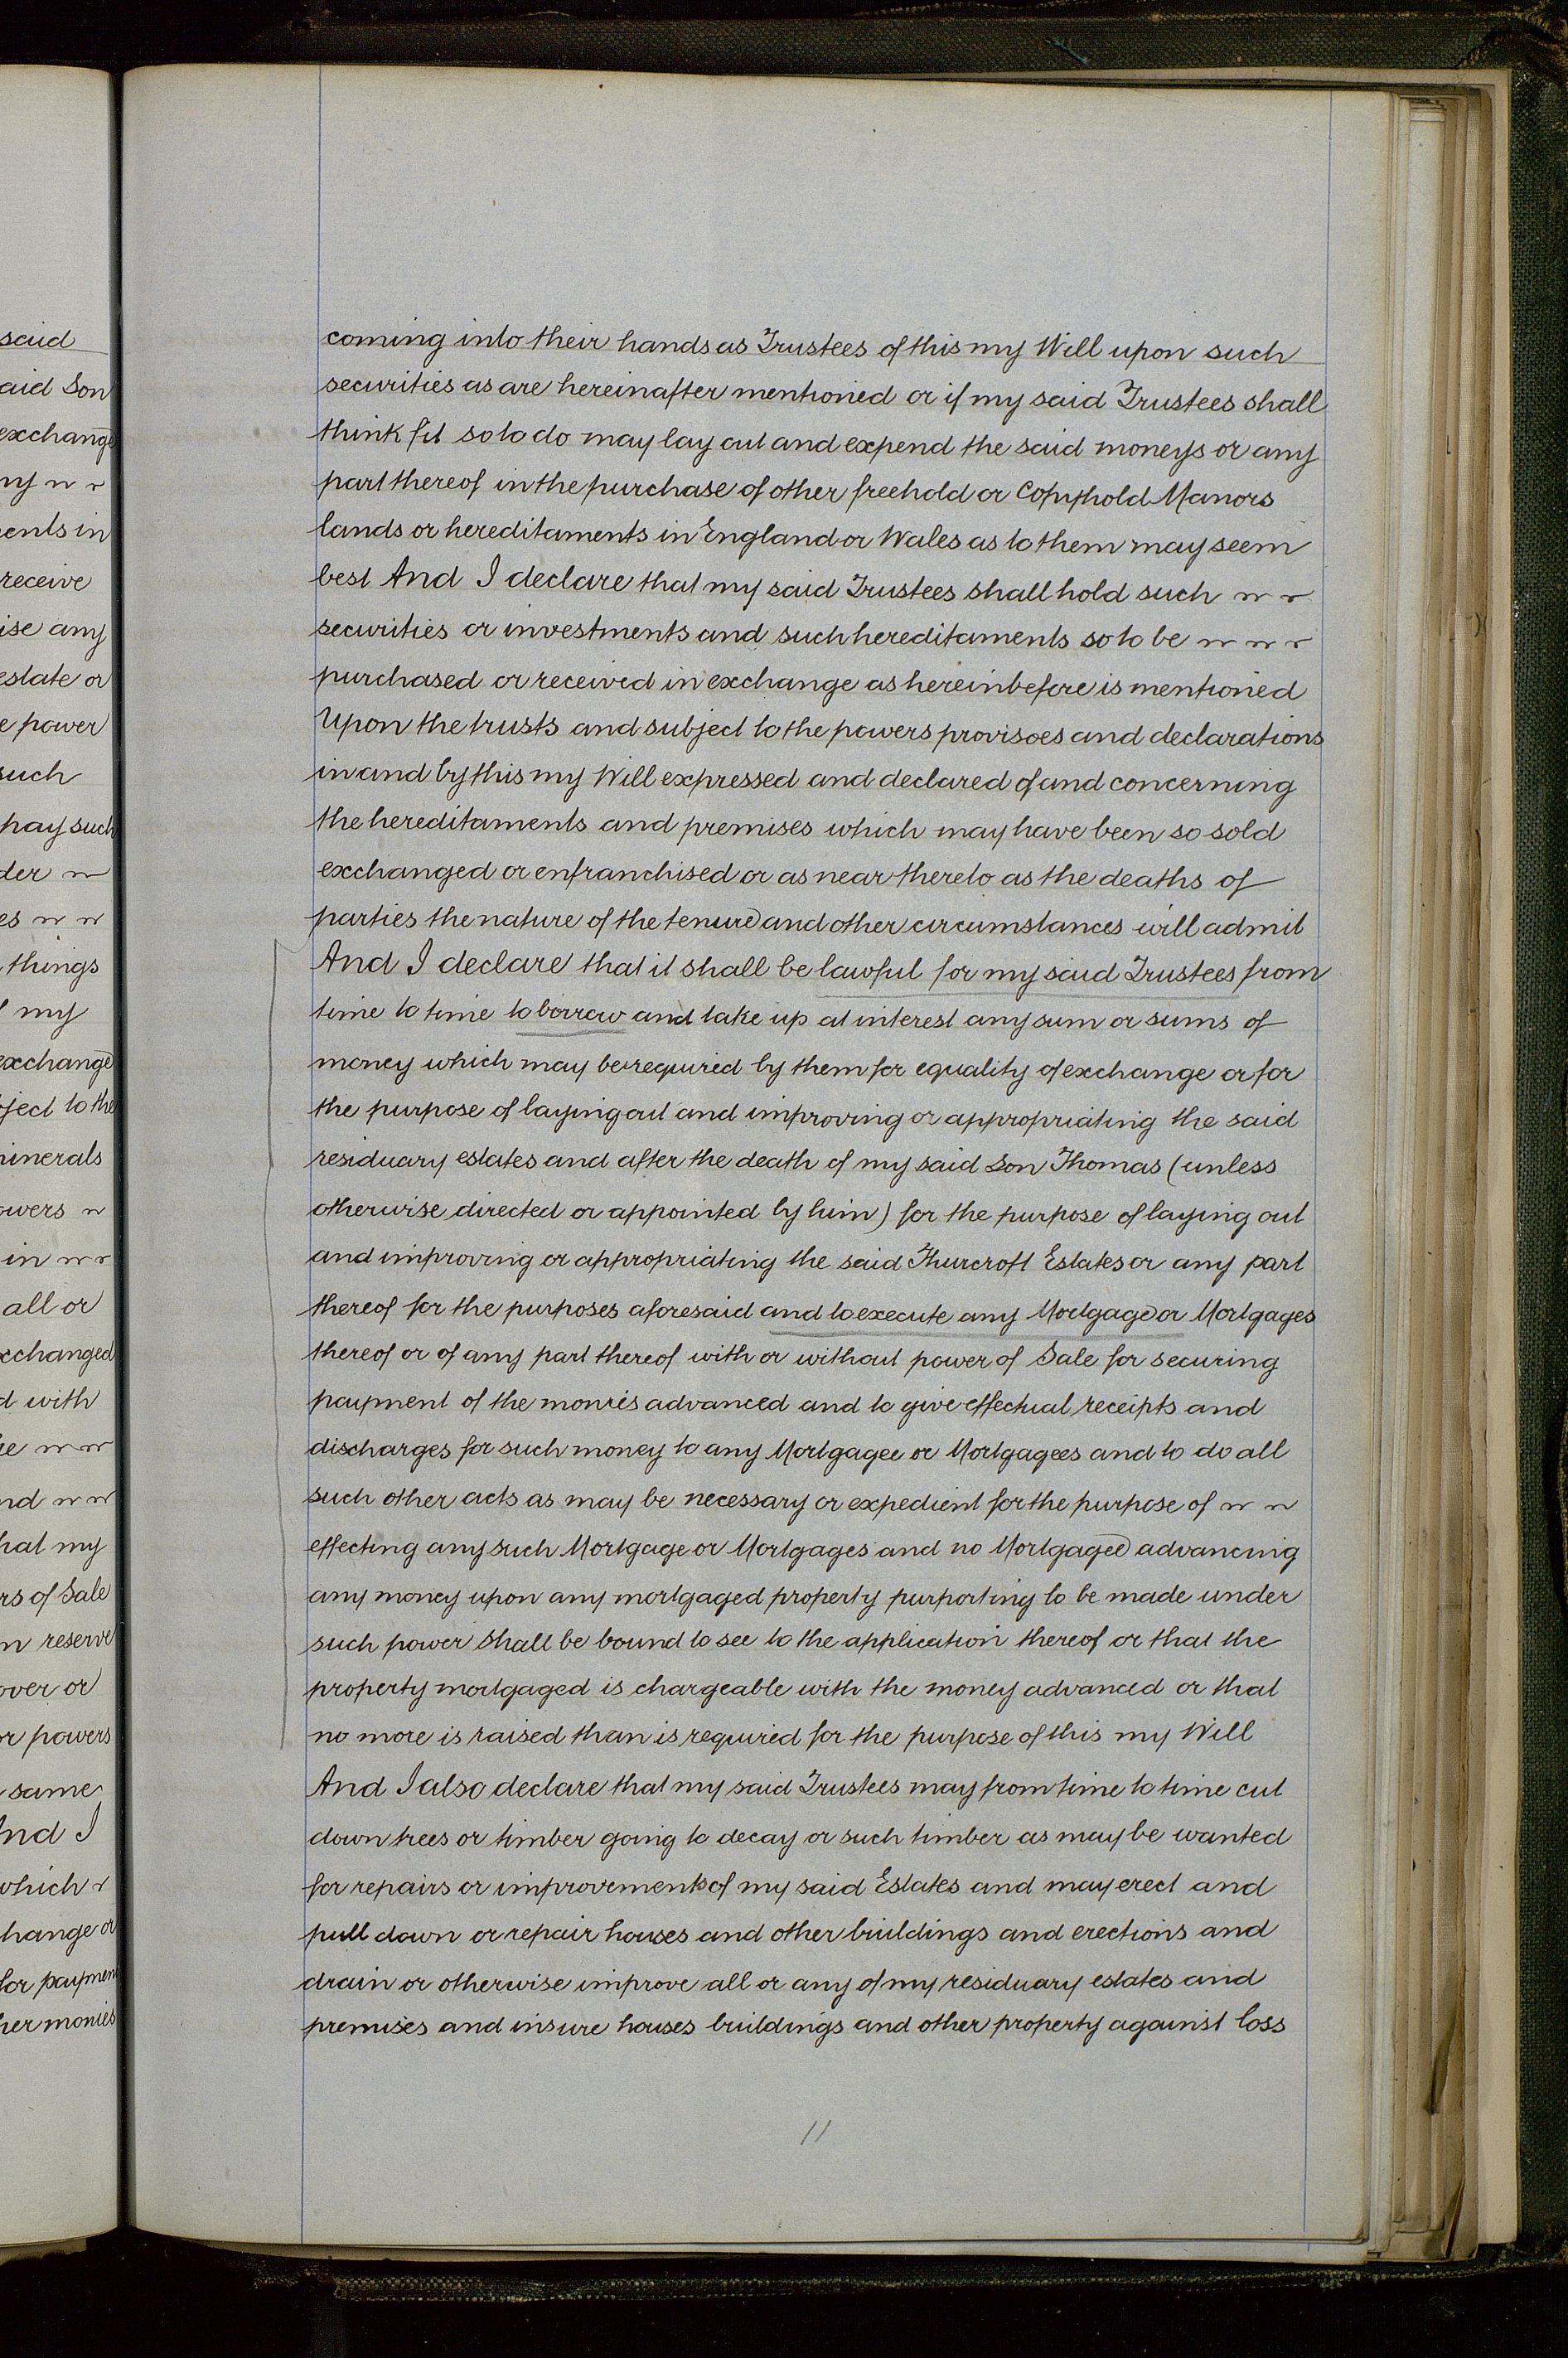 coming into their hands as Trustees of this my Will upon such
securities as are hereinafter mentioned or if my said Trustees shall
think fit so to do may lay out and expend the said moneys or any
part thereof in the purchase of other freehold or Copyhold Manors
lands or hereditaments in England or Wales as to them may seem
best And I declare that my said Trustees shall hold such
securities or investments and such hereditaments so to be
purchased or received in exchange as hereinbefore is mentioned
Upon the trusts and subject to the powers provisoes and declarations
in and by this my Will expressed and declared of and concerning
the hereditaments and premises which may have been so sold
exchanged or enfranchised or as near thereto as the deaths of
parties the nature of the tenure and other circumstances will admit
And I declare that it shall be lawful for my said Trustees from
time to time to borrow and take up at interest any sum or sums of
money which may be required by them for equality of exchange or for
the purpose of laying out and improving or appropriating the said
residuary estates and after the death of my said Son Thomas (unless
otherwise directed or appointed by him) for the purpose of laying out
and improving or appropriating the said Thurcroft Estates or any part
thereof for the purposes aforesaid and to execute any Mortgage or Mortgages
thereof or of any part thereof with or without power of Sale for securing
payment of the monies advanced and to give effectual receipts and
discharges for such money to any Mortgagee or Mortgagees and to do all
such other acts as may be necessary or expedient for the purpose of
effecting any such Mortgage or Mortgages and no Mortgagee advancing
any money upon any mortgaged property purporting to be made under
such power shall be bound to see to the application thereof or that the
property mortgaged is chargeable with the money advanced or that
no more is raised than is required for the purpose of this my Will
And I also declare that my said Trustees may from time to time cut
down trees or timber going to decay or such timber as may be wanted
for repairs or improvements of my said Estates and may erect and
pull down or repair houses and other buildings and erections and
drain or otherwise improve all or any of my residuary estates and
premises and insure houses buildings and other property against loss
11